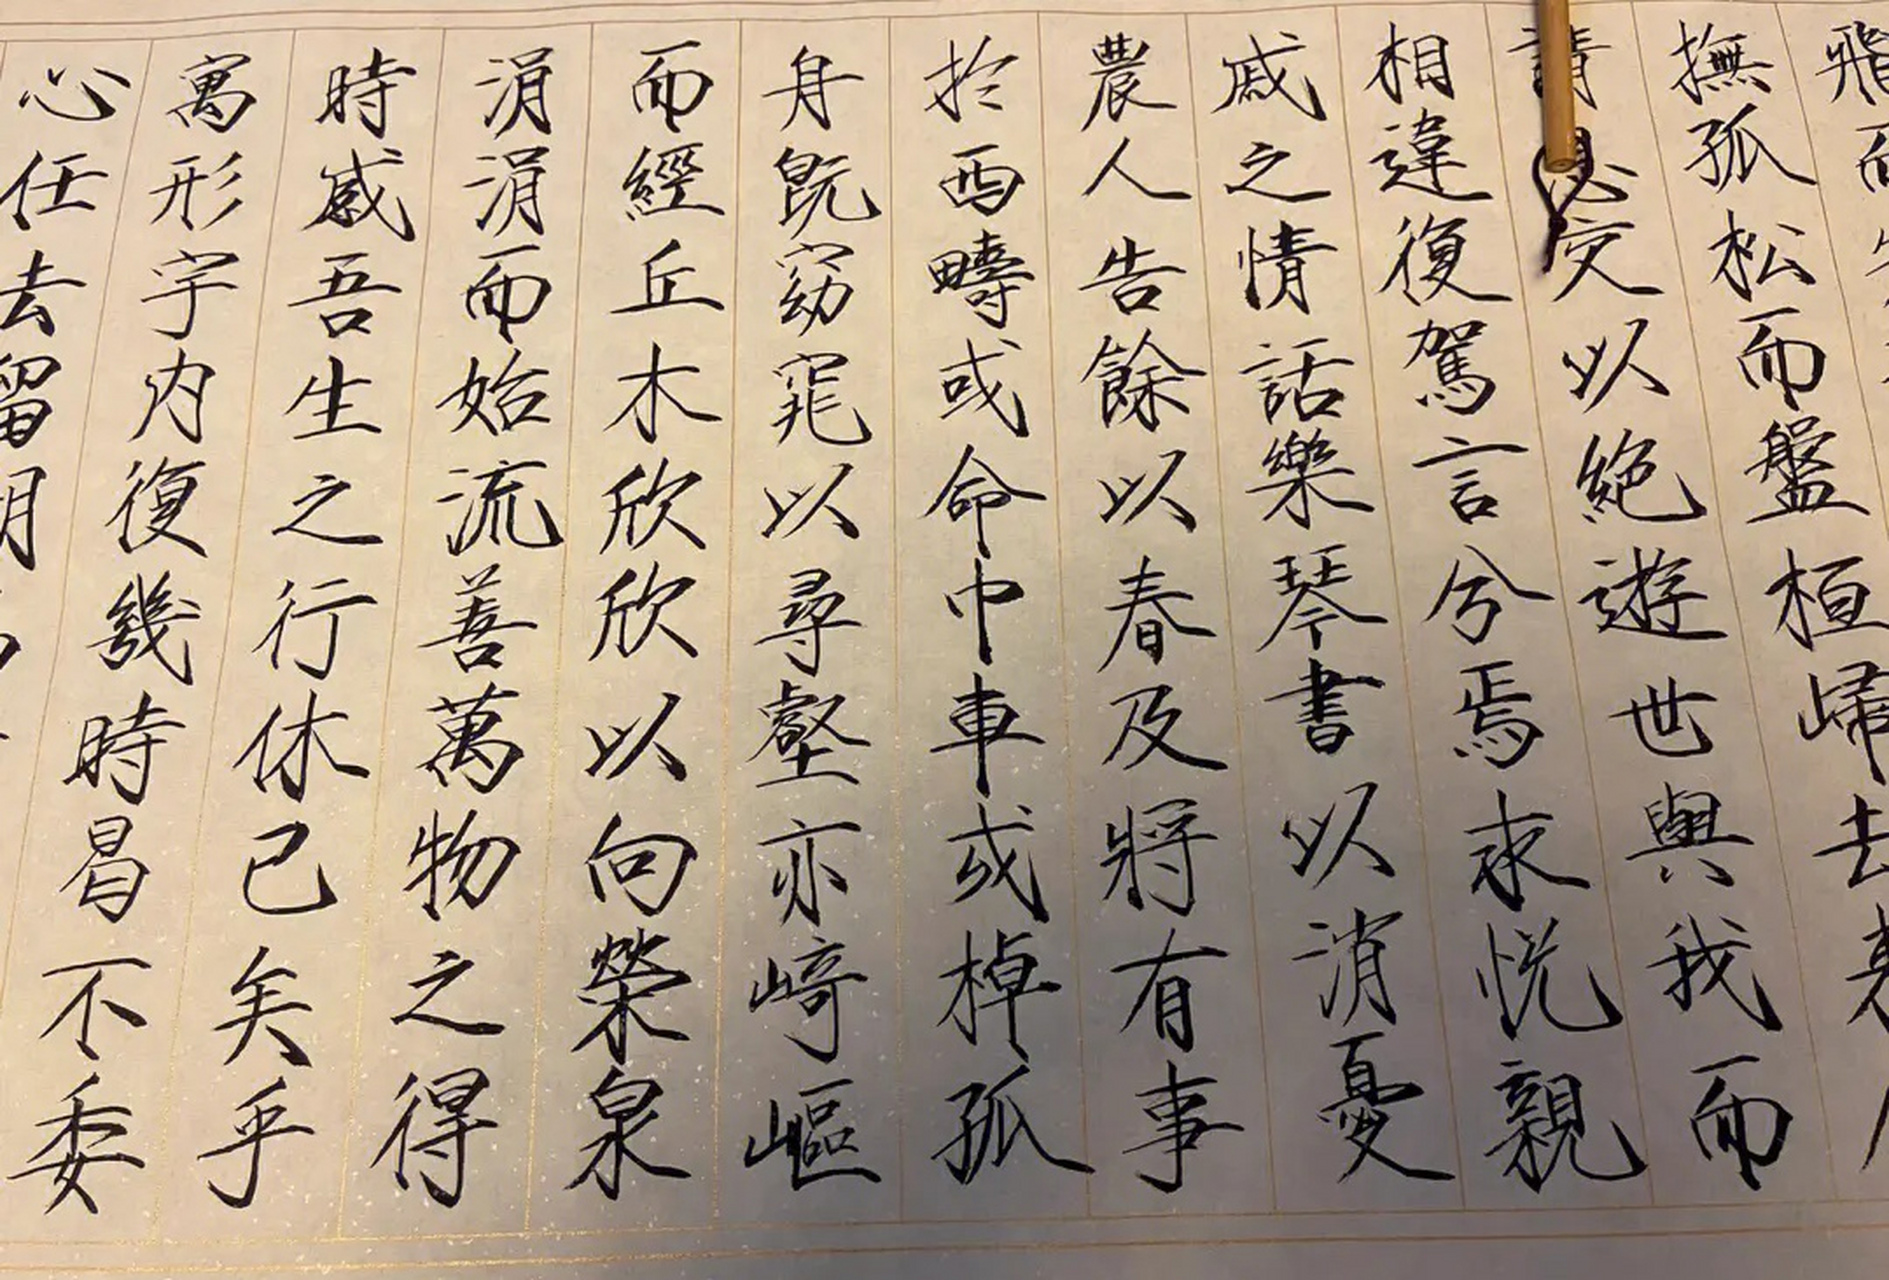 飛
撫孤松而盤桓歸去
請息交以絕遊世與我而
相違復駕言兮焉求悦親
戚之情話樂琴書以消憂
農人告餘以春及將有事
於西疇或命巾車或棹孤
舟既窈窕以尋壑亦崎嶇
而經丘木欣欣以向榮泉
涓涓而始流善萬物之得
時感吾生之行休已矣乎
寓形宇内復幾時曷不委
心任去留